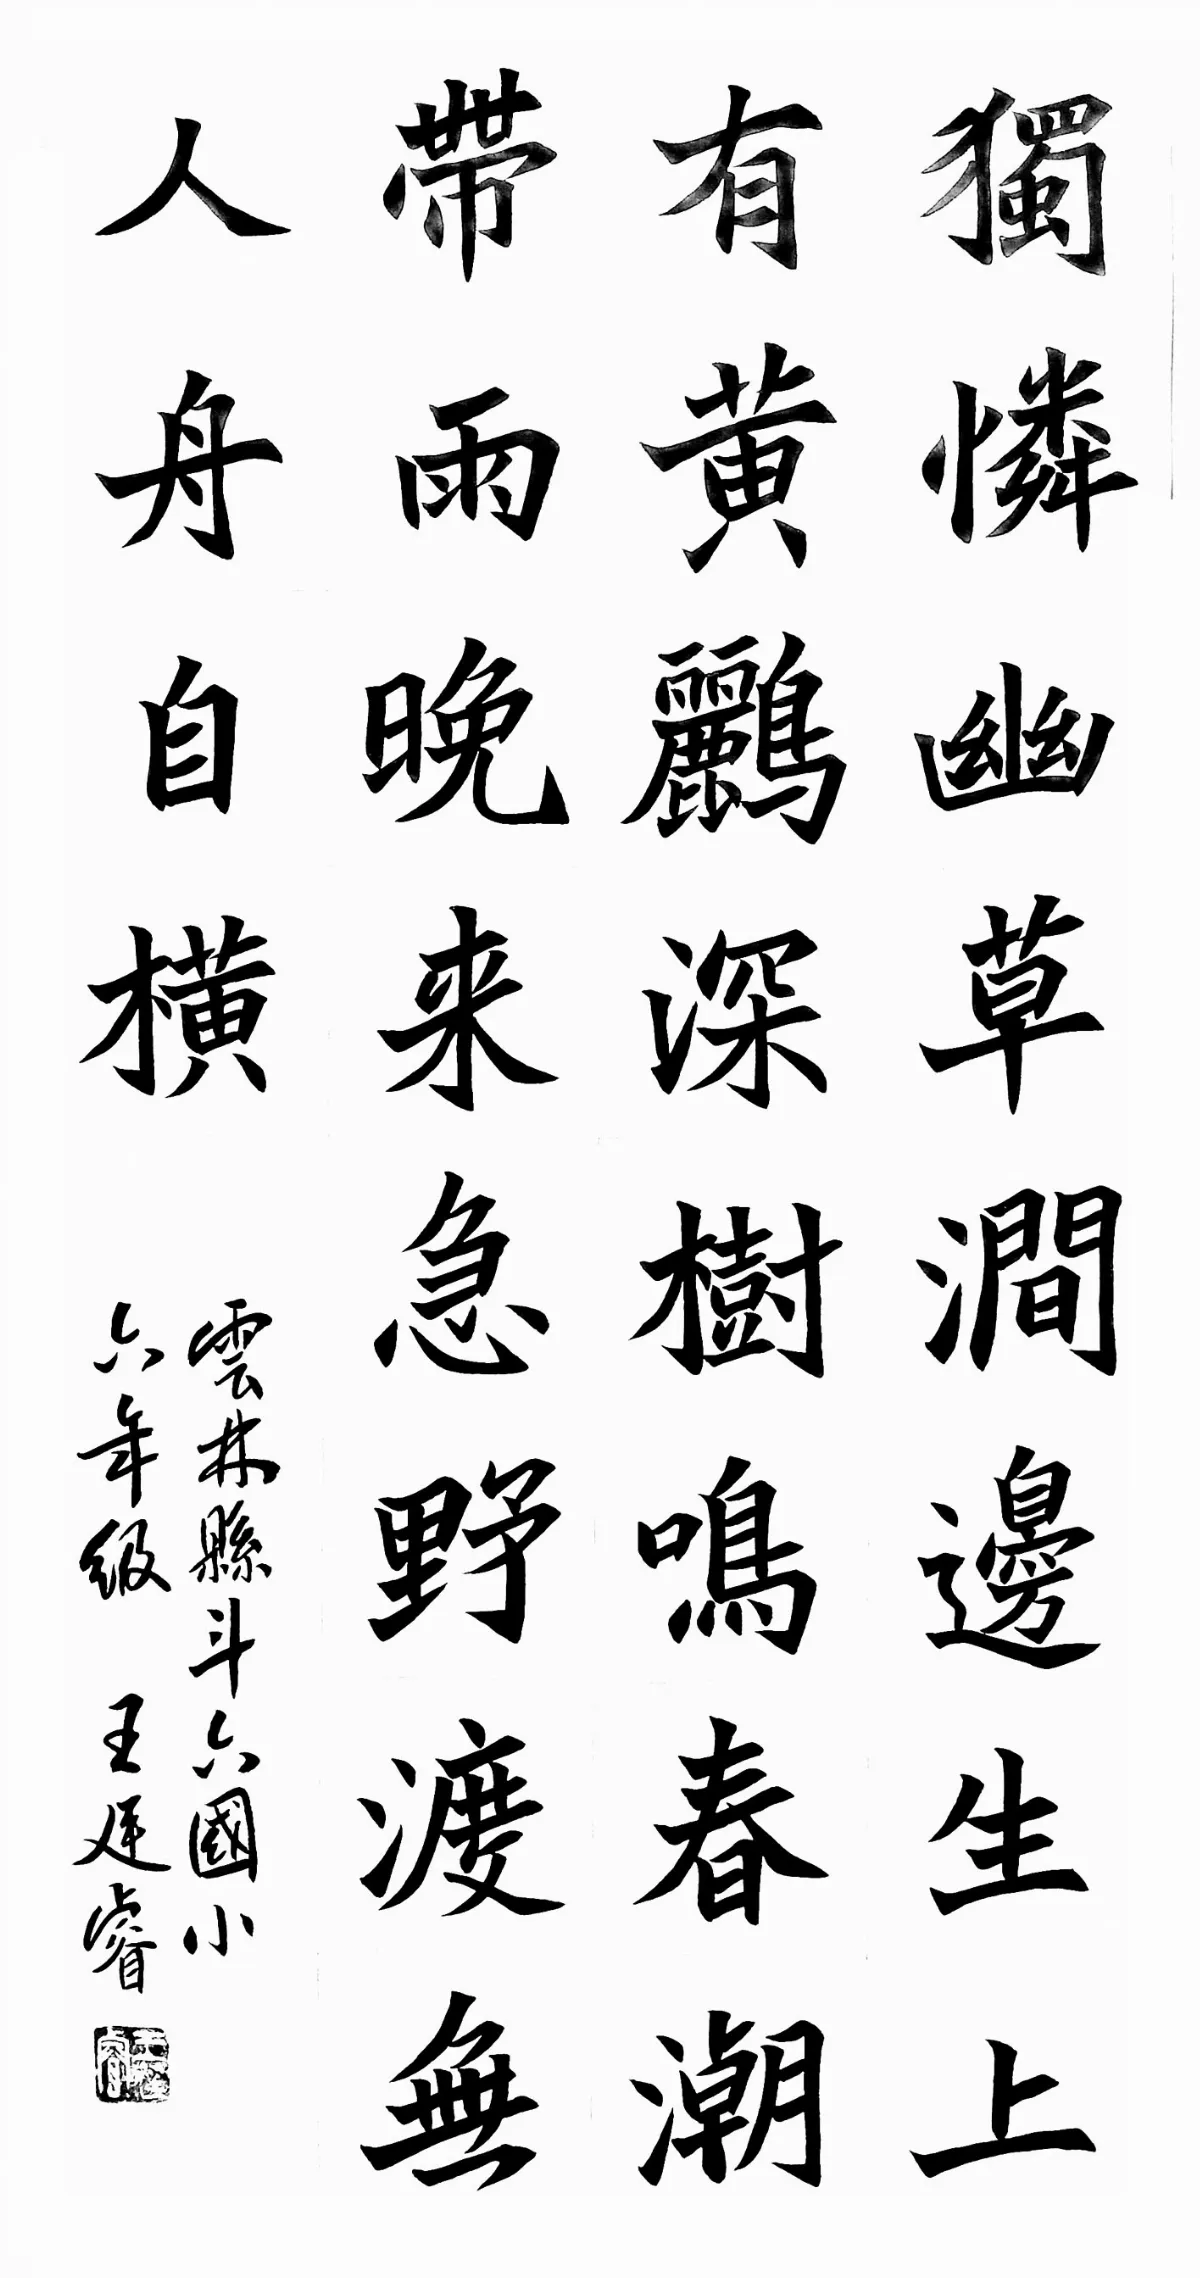 獨憐幽草澗邊生上
有黄鸝深樹鳴春潮
帶雨晚来急野渡無
人舟自横
雲林縣斗六國小
六年級 王廷睿